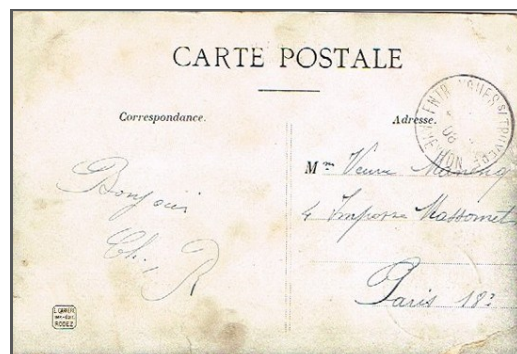 CARTE POSTALE
Correspondance.
Adresse.
Bonjour
Ch. R
Mme Veuve
4 Impasse Massonnet
Paris 18e
RODEZ